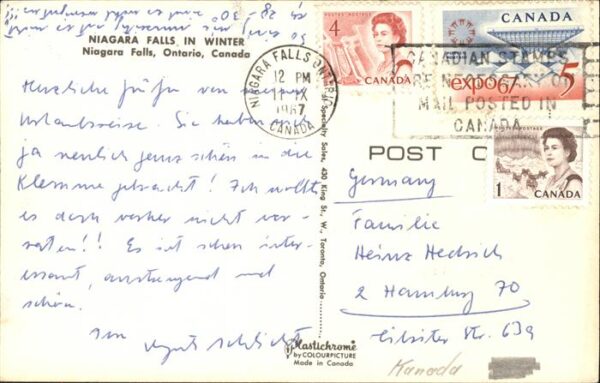 NIAGARA FALLS IN WINTER
Niagara Falls, Ontario, Canada
Herzliche Grüße von meiner
Urlaubsreise. Sie haben mich
ja neulich ganz schön in die
Klemme gebracht! Ich wollte
es doch vorher nicht ver-
raten!! Es ist schon inter-
essant, anstrengend und
schön.
Specialty Sales, 430 King St., W., Toronto, Ontario
Plastichrome
by COLOURPICTURE
Made in Canada
4
CANADA
POSTES POSTAGE
CANADA
expo67
5
NIAGARA FALLS ONTARIO
12 PM
11 IX
1967
CANADA
CANADIAN STAMPS
ARE NECESSARY ON
MAIL POSTED IN
CANADA
POSTES POSTAGE
1
CANADA
POST C
Germany
Familie
Heinz
2 Hamburg 70
Str. 63a
Kanada